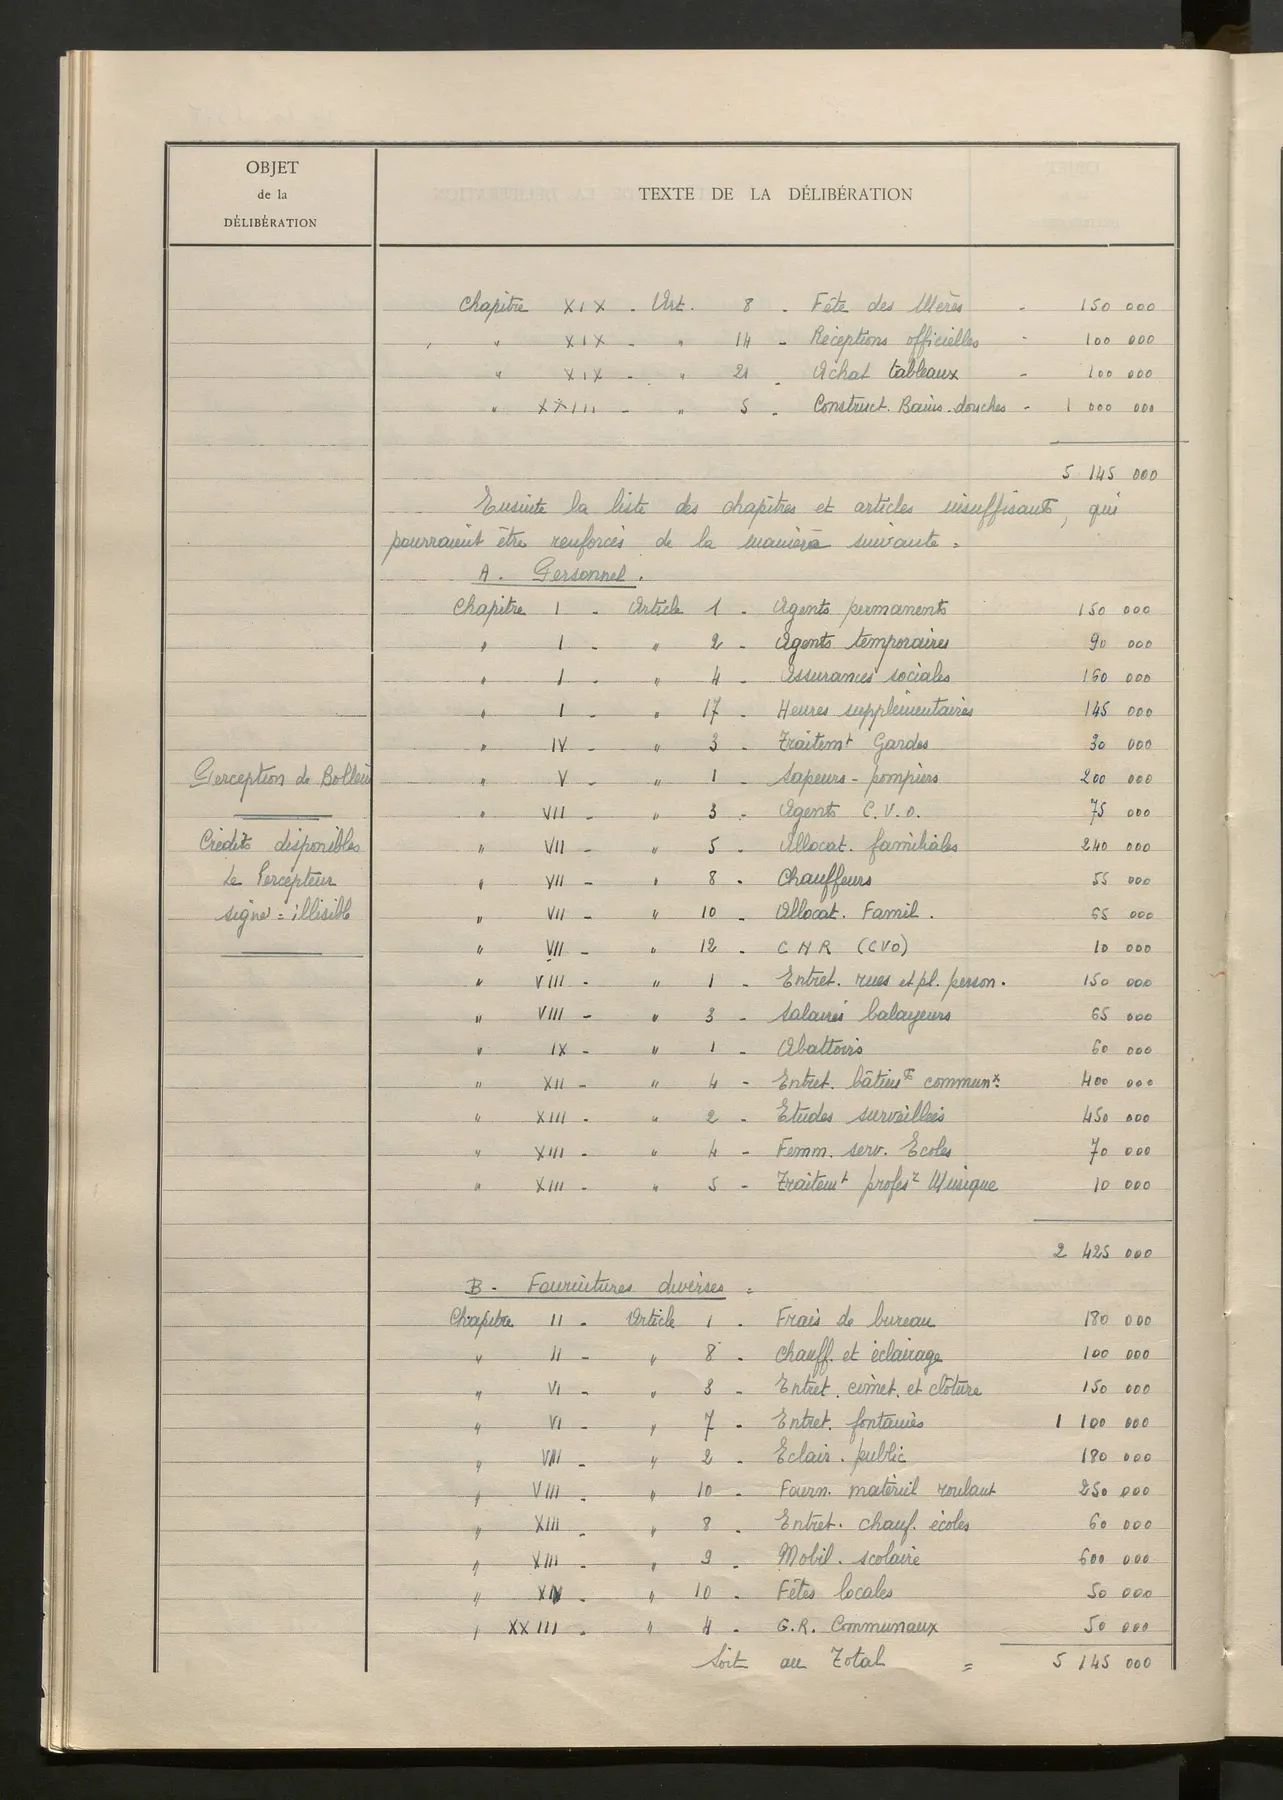 OBJET
de la
DÉLIBÉRATION
TEXTE DE LA DÉLIBÉRATION
Chapitre XIX - Art. 8 - Fête des Mères - 150 000
" XIX - " 14 - Réceptions officielles - 100 000
" XIX - " 21 - Achat tableaux - 100 000
" XXIII - " 5 - Construct. Bains-douches - 1 000 000
5 145 000
Ensuite la liste des chapitres et articles insuffisants, qui
pourraient être renforcés de la manière suivante =
A. Personnel.
Chapitre I - Article 1 - Agents permanents 150 000
" I - " 2 - Agents temporaires 90 000
" I - " 4 - Assurances sociales 160 000
" I - " 17 - Heures supplémentaires 145 000
" IV - " 3 - Traitemt Gardes 30 000
" V - " 1 - Sapeurs-pompiers 200 000
" VII - " 3 - Agents C.V.O. 75 000
" VII - " 5 - Allocat. familiales 240 000
" VII - " 8 - Chauffeurs 55 000
" VII - " 10 - Allocat. Famil. 65 000
" VII - " 12 - C N R (CVO) 10 000
" VIII - " 1 - Entret. rues et pl. person. 150 000
" VIII - " 3 - Salaires balayeurs 65 000
" IX - " 1 - Abattoirs 60 000
" XII - " 4 - Entret. bâtim^ts commun^x. 400 000
" XIII - " 2 - Etudes surveillées 450 000
" XIII - " 4 - Femm. serv. Ecoles 70 000
" XIII - " 5 - Traitemt profesr Musique 10 000
2 425 000
B - Fournitures diverses =
Chapitre II - Article 1 - Frais de bureau 180 000
" II - " 8 - Chauff. et éclairage 100 000
" VI - " 3 - Entret. cimet. et clôture 150 000
" VI - " 7 - Entret. fontaines 1 100 000
" VIII - " 2 - Eclair. public 180 000
" VIII - " 10 - Fourn. matériel roulant 250 000
" XIII - " 8 - Entret. chauf. écoles 60 000
" XIII - " 9 - Mobil. scolaire 600 000
" " 10 - Fêtes locales 50 000
" XXIII - " 4 - G.R. Communaux 50 000
Soit au Total = 5 145 000
Perception de Bollène
Crédits disponibles
Le Percepteur
signé = illisible